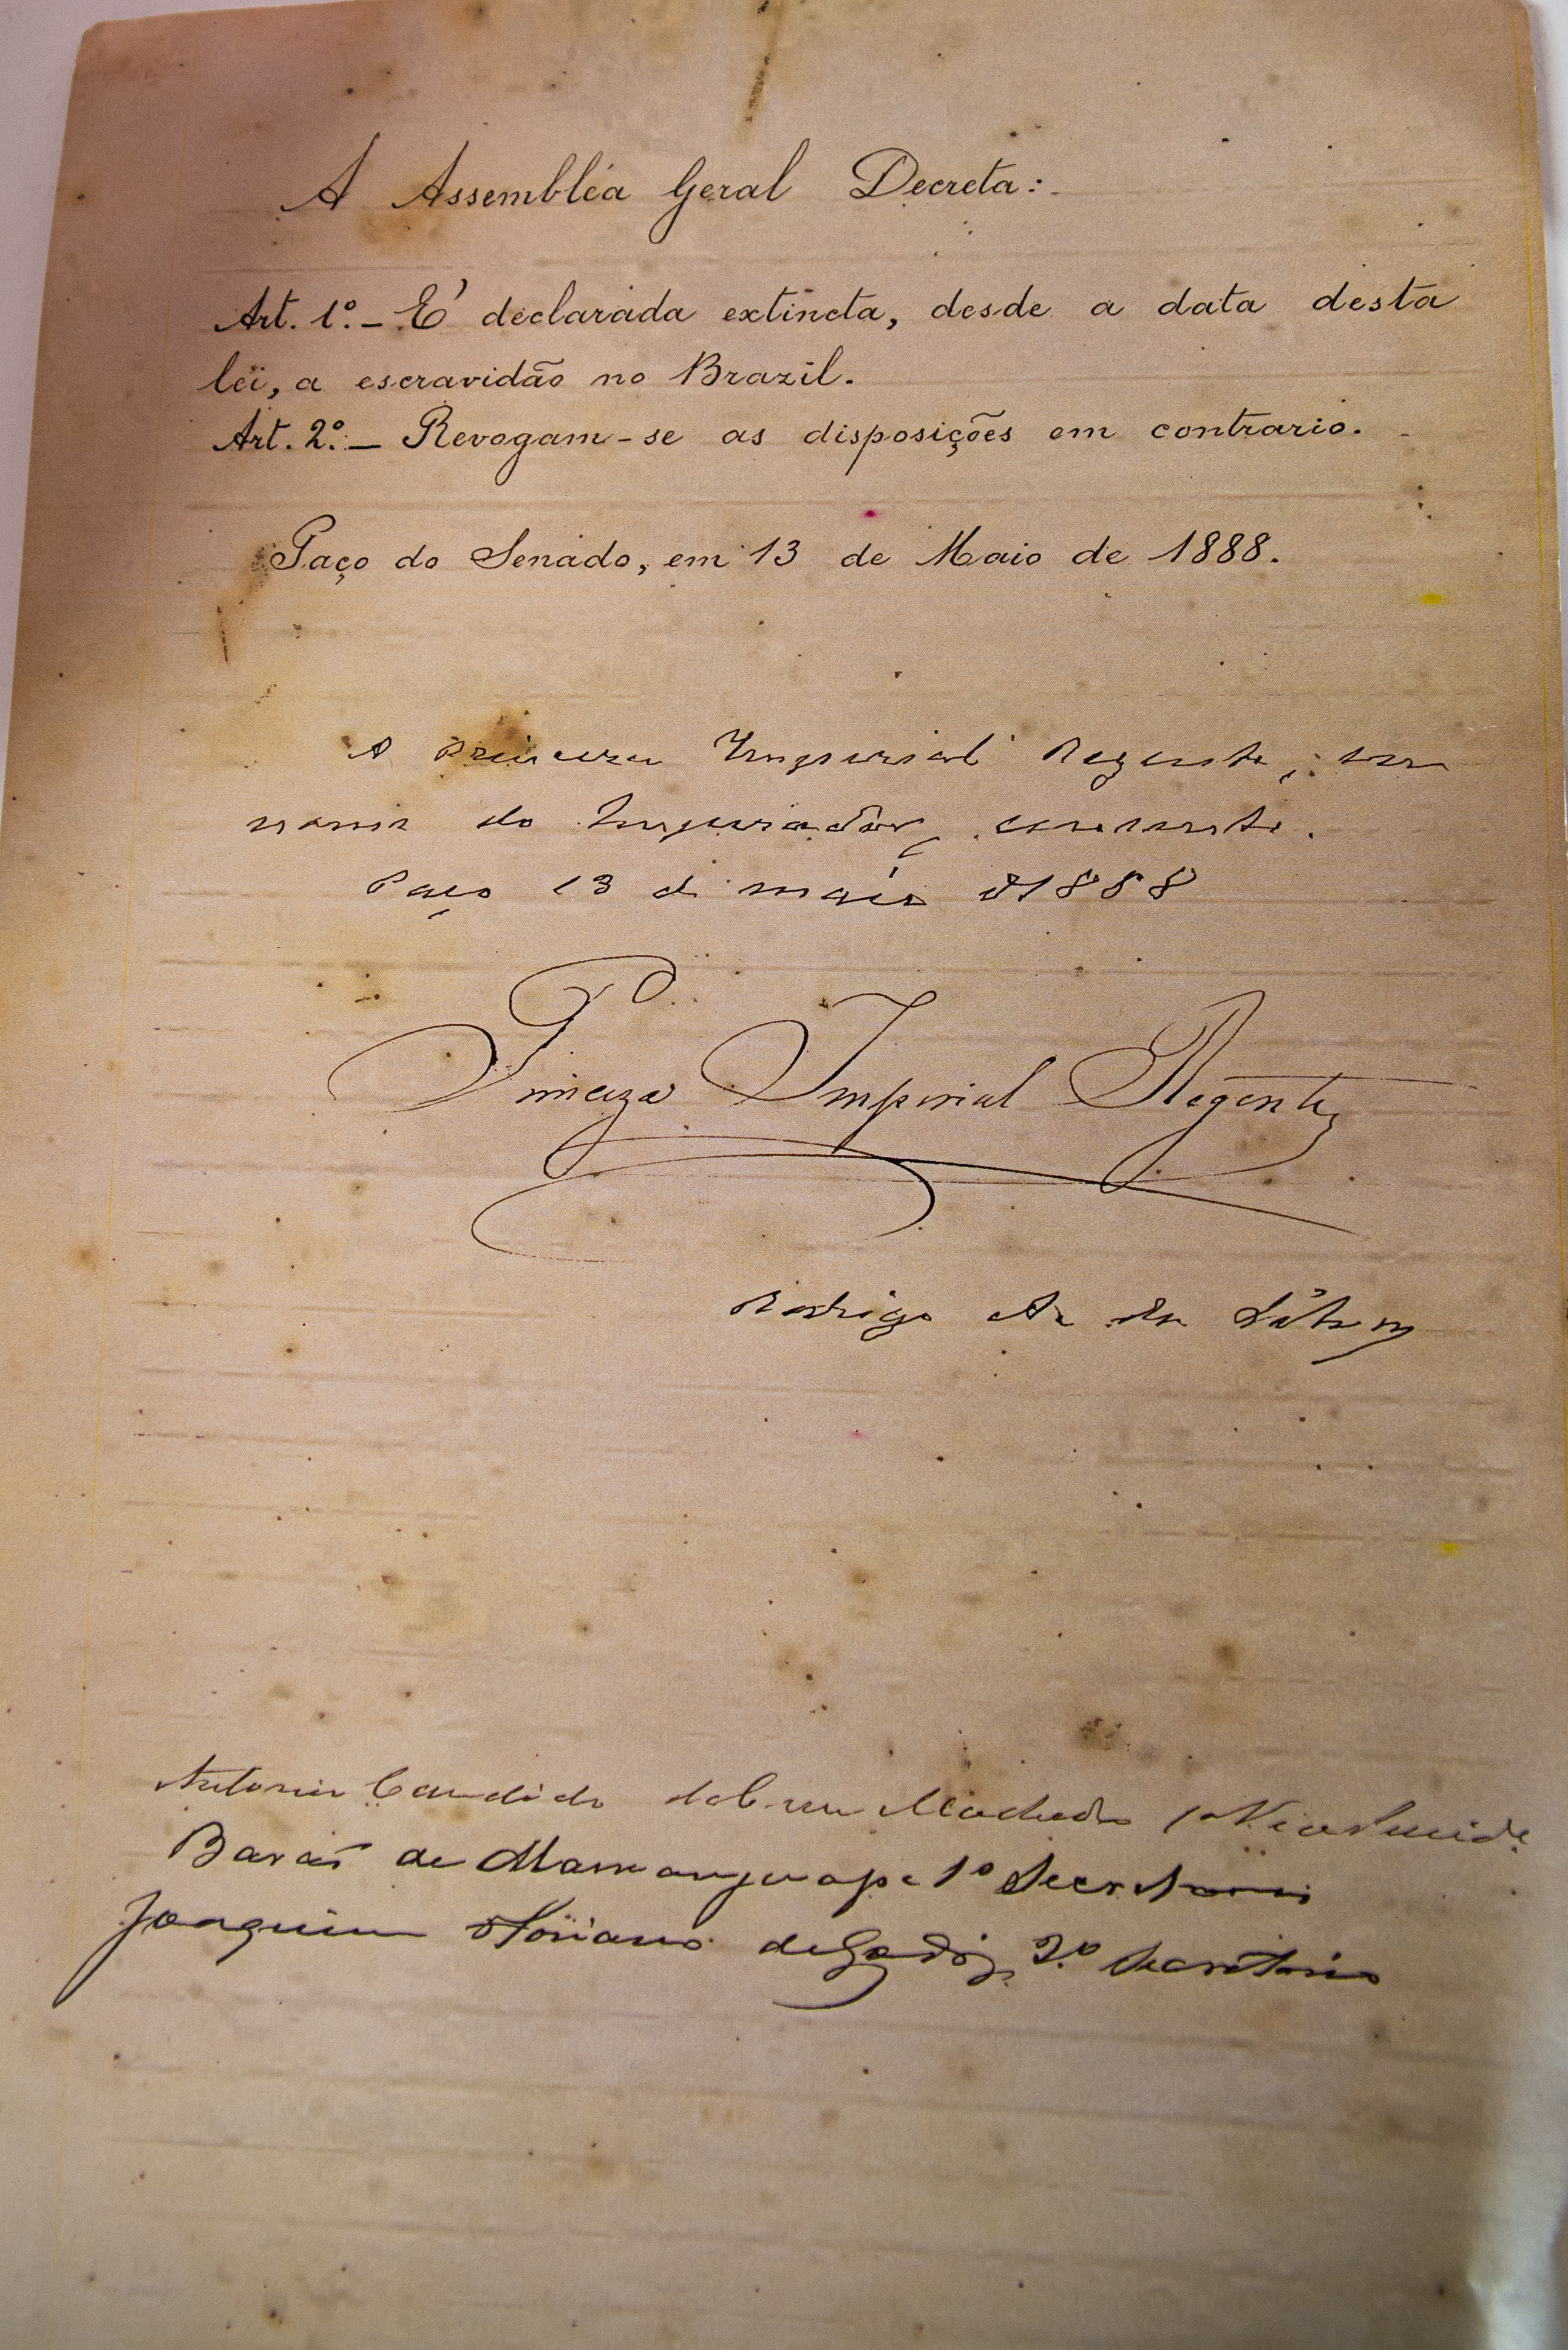 A Assembléa Geral Decreta:
Art. 1º. – É declarada extincta, desde a data desta
lei, a escravidão no Brazil.
Art. 2º. – Revogam-se as disposições em contrario.
Paço do Senado, em 13 de Maio de 1888.
A Princeza Imperial Regente, em
nome do Imperador, consente.
Paço 13 de maio de 1888
Princeza Imperial Regente
Rodrigo A. da Silva
Antonio Candido da Cruz Machado 1º Vice Presidente
Barão de Mamanguape 1º Secretario
Joaquim Floriano de Godoy, 2º Secretario